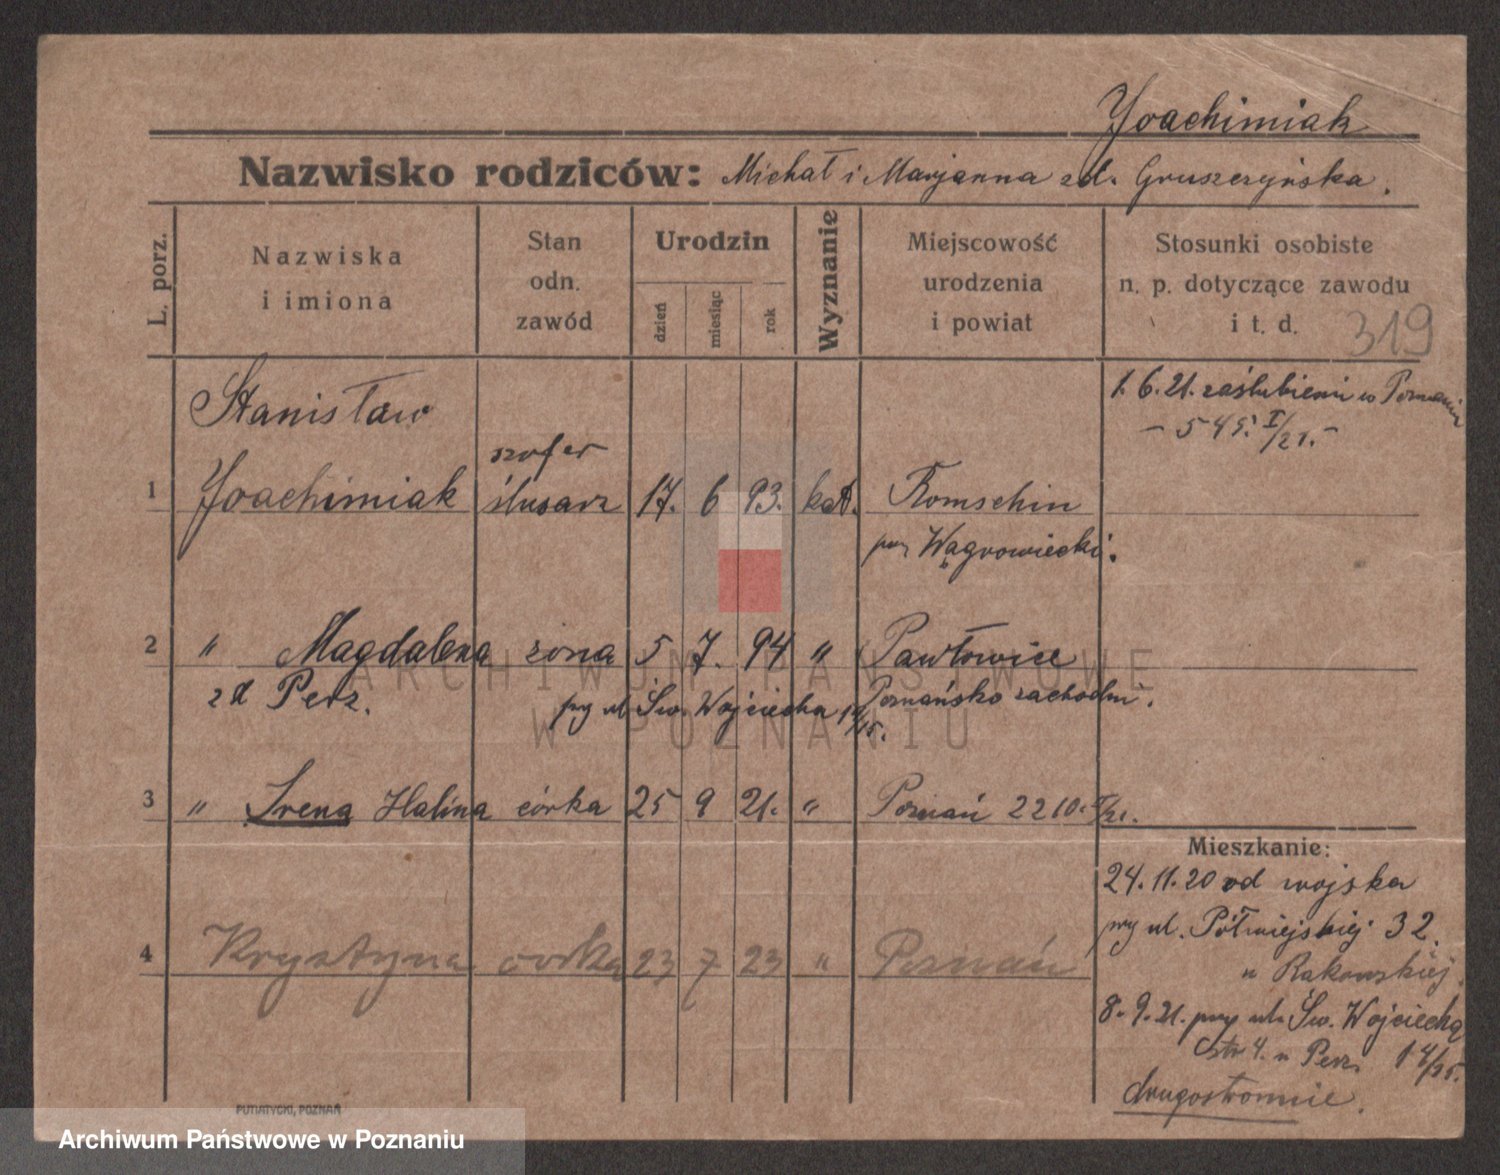 Joachimiak
Nazwisko rodziców: Michał i Marjanna zd. Gruszczyńska.
L. porz.
Nazwiska
i imiona
Stan
odn.
zawód
Urodzin
dzień
miesiąc
rok
Wyznanie
Miejscowość
urodzenia
i powiat
Stosunki osobiste
n. p. dotyczące zawodu
i t. d.
319
1. 6. 21. zaślubieni w Poznaniu
- 545. I/21. -
Stanisław
szofer
1 Joachimiak ślusarz 17. 6 93. kat. Romschin
pow. Wągrowiecki.
2 " Magdalena żona 5 7. 94 " Pawłowice
zd Perz. Poznańsko zachodni.
przy ul Św. Wojciecha 14/15.
3 " Irena Halina córka 25 9 21. " Poznań 2210. I/21.
Mieszkanie:
24. 11. 20 od wojska
przy ul. Półwiejskiej 32.
u Rakowskiej.
4 Krystyna córka 23 7 23 " Poznań
8. 9. 21. przy ul. Św. Wojciecha
4. u Perz. 14/15.
drugostronnie.
PUTIATYCKI, POZNAŃ
ARCHIWUM PAŃSTWOWE
W POZNANIU
Archiwum Państwowe w Poznaniu